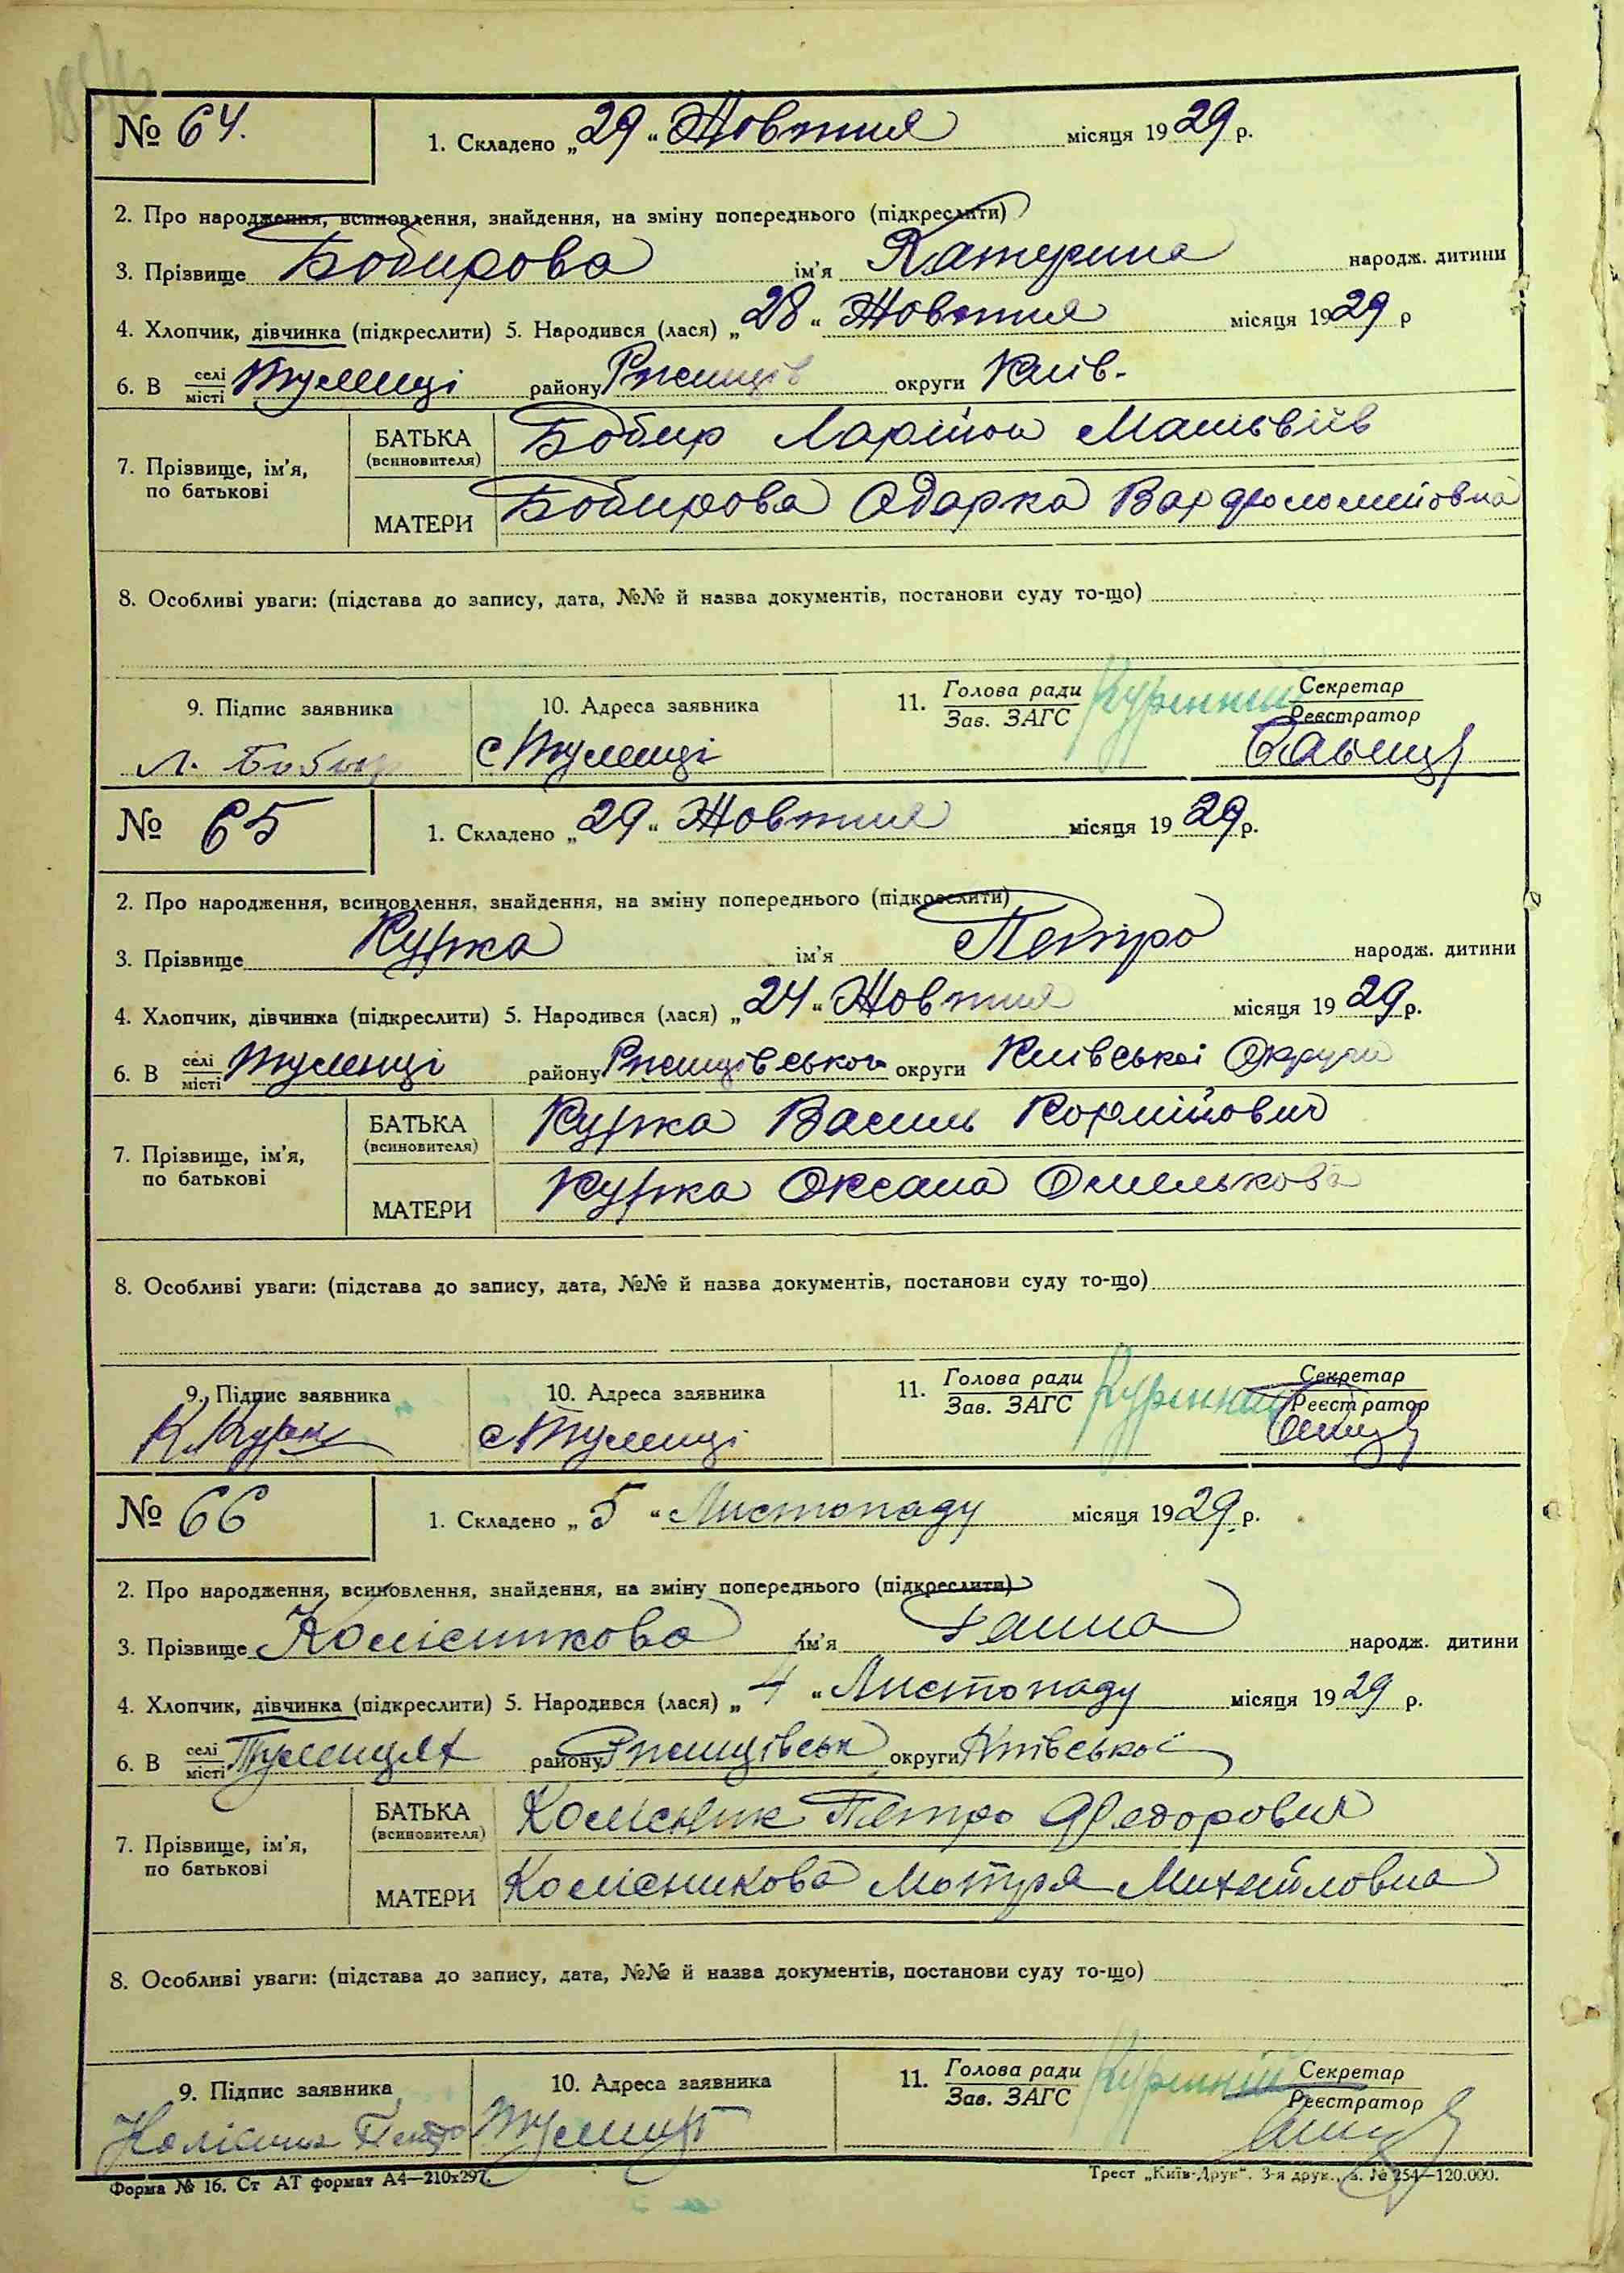 № 64. 1. Складено „29“ Жовтня місяця 1929 р.
2. Про народження, всиновлення, знайдення, на зміну попереднього (підкреслити)
3. Прізвище Бобирова ім'я Катерина народж. дитини
4. Хлопчик, дівчинка (підкреслити) 5. Народився (лася) „28“ Жовтня місяця 1929 р
6. В селі місті Тулинці району Ржищів округи Київ.
7. Прізвище, ім'я, по батькові
БАТЬКА (всиновителя) Бобир Ларіон Матьвіїв
МАТЕРИ Бобирова Одарка Варфоломеїовна
8. Особливі уваги: (підстава до запису, дата, №№ й назва документів, постанови суду то-що)
9. Підпис заявника 10. Адреса заявника 11. Голова ради Зав. ЗАГС Куренний Секретар Реєстратор
Л. Бобир с Тулинці
№ 65 1. Складено „29“ Жовтня місяця 1929 р.
2. Про народження, всиновлення, знайдення, на зміну попереднього (підкреслити)
3. Прізвище Курка ім'я Петро народж. дитини
4. Хлопчик, дівчинка (підкреслити) 5. Народився (лася) „24“ Жовтня місяця 1929 р.
6. В селі місті Тулинці району Ржищівського округи Київської Округи
7. Прізвище, ім'я, по батькові
БАТЬКА (всиновителя) Курка Василь Корнійович
МАТЕРИ Курка Оксана Омелькова
8. Особливі уваги: (підстава до запису, дата, №№ й назва документів, постанови суду то-що)
9. Підпис заявника 10. Адреса заявника 11. Голова ради Зав. ЗАГС Куренний Секретар Реєстратор
К. Курка с Тулинці
№ 66 1. Складено „5“ Листопаду місяця 1929 р.
2. Про народження, всиновлення, знайдення, на зміну попереднього (підкреслити)
3. Прізвище Колісникова ім'я Ганна народж. дитини
4. Хлопчик, дівчинка (підкреслити) 5. Народився (лася) „4“ Листопаду місяця 1929 р.
6. В селі місті Тулинцях району Ржищівськ округи Київської
7. Прізвище, ім'я, по батькові
БАТЬКА (всиновителя) Колісник Петро Федорович
МАТЕРИ Колісникова Мотря Михайловна
8. Особливі уваги: (підстава до запису, дата, №№ й назва документів, постанови суду то-що)
9. Підпис заявника 10. Адреса заявника 11. Голова ради Зав. ЗАГС Куренний Секретар Реєстратор
Колісник Петро Тулинці
Форма № 16. Ст АТ формат А4—210х297. Трест „Київ-Друк“. 3-я друк., з. № 254—120.000.